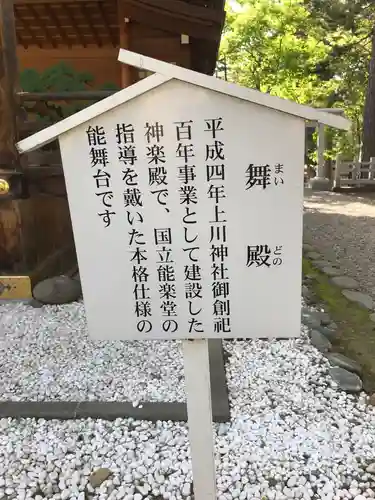 舞殿
まい
どの
平成四年上川神社御創祀
百年事業として建設した
神楽殿で、国立能楽堂の
指導を戴いた本格仕様の
能舞台です